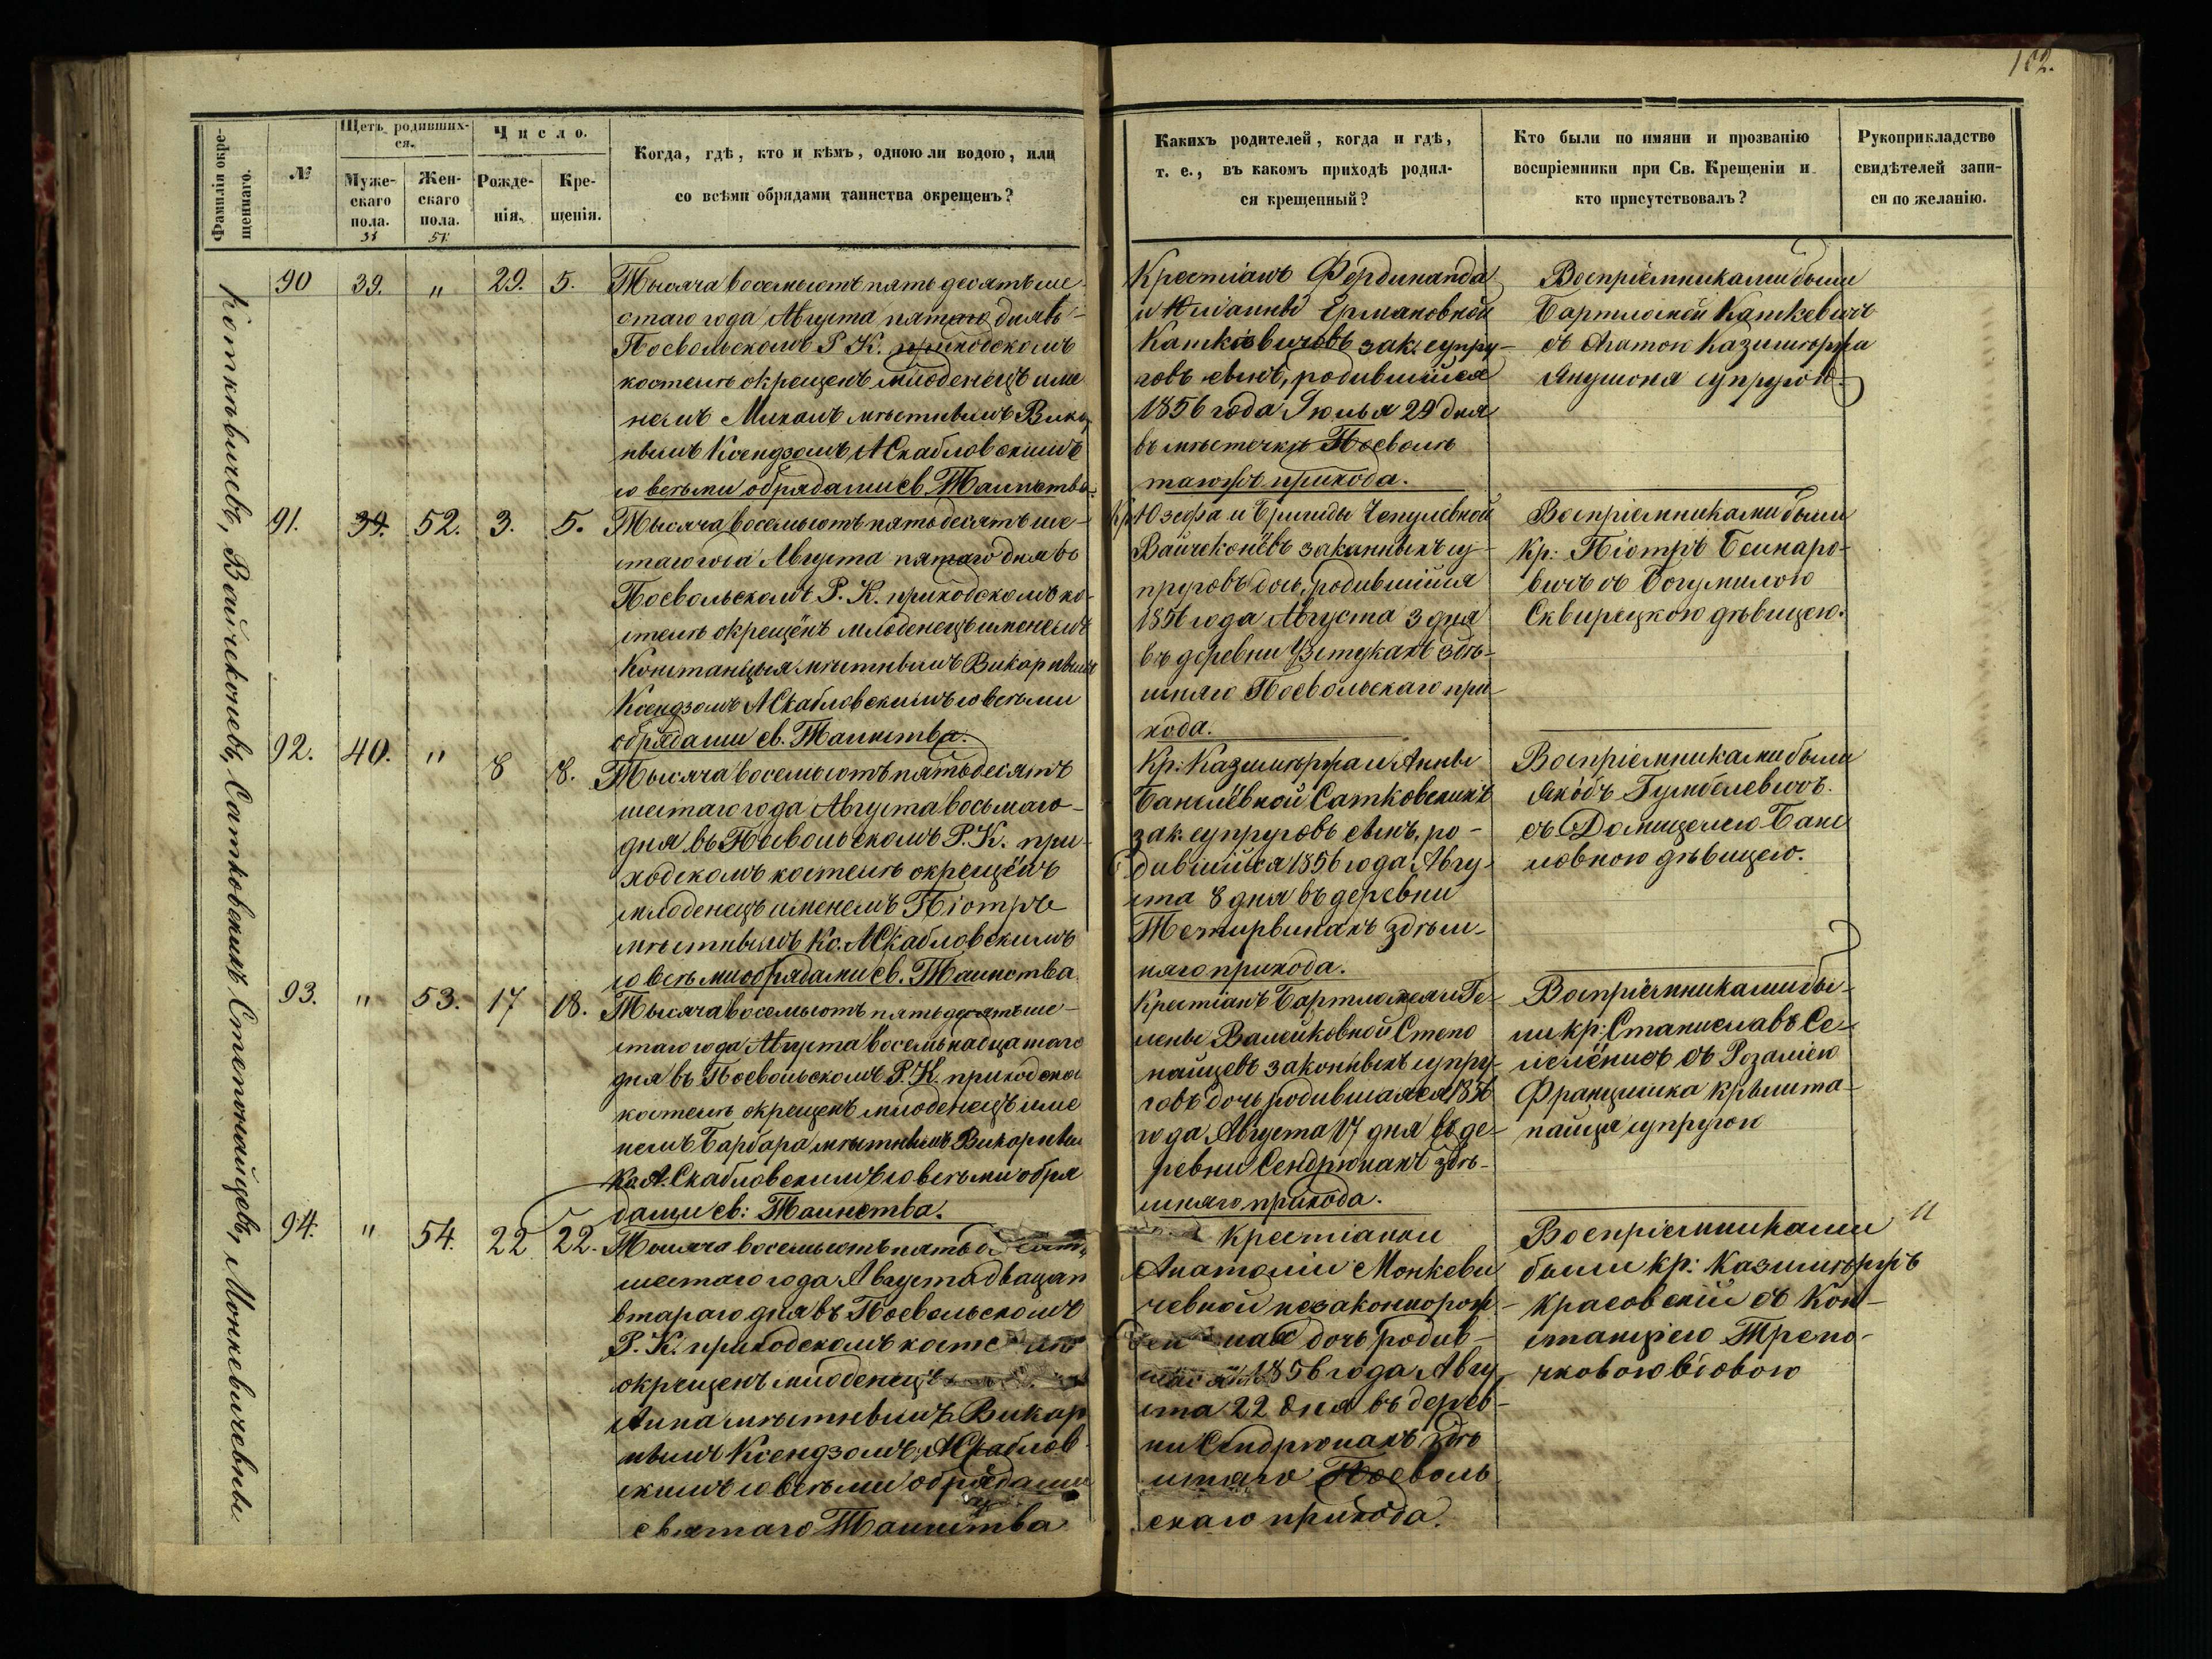 102.
Фамиліи окре-
щеннаго.
№
Щетъ родивших-
ся.
Муже-
скаго
пола.
Жен-
скаго
пола.
Число.
Рожде-
нія.
Кре-
щенія.
Когда, гдѣ, кто и кѣмъ, одною ли водою, или
со всѣми обрядами таинства окрещенъ?
Какихъ родителей, когда и гдѣ,
т. е., въ какомъ приходѣ родил-
ся крещенный?
Кто были по имяни и прозванію
воспріемники при Св. Крещеніи и
кто присутствовалъ?
Рукоприкладство
свидѣтелей запи-
си по желанію.
38 51.
90 39. " 29. 5.
Тысяча восемьсотъ пятьдесятъ ше-
стаго года Августа пятаго дня въ
Посвольскомъ Р. К. приходскомъ
костелѣ окрещенъ младенецъ име
немъ Михалъ мѣстнымъ Викар
нымъ Ксендзомъ А Скабловскимъ
со всѣми обрядами св. Таинства.
Крестіанъ Фердинанда
и Юліанны Ермановной
Каткевичовъ зак. супру-
говъ сынъ, родившійся
1856 года Іюлья 29 дня
въ мѣстечкѣ Посволѣ
тагожъ прихода.
Воспріемниками были
Бартломей Каткевичъ
съ Агатою Казимѣржа
Янушоня супругою.
91. 39. 52. 3. 5.
Тысяча восемьсотъ пятьдесятъ ше-
стаго года Августа пятаго дня въ
Посвольскомъ Р. К. приходскомъ ко-
стелѣ окрещёнъ младенецъ именемъ
Констанцыя мѣстнымъ Викарнымъ
Ксендзомъ А Скабловскимъ со всѣми
обрядами св. Таинства.
Кр: Юзефа и Бригиды Чепулевной
Вайчеконёвъ законныхъ су-
пруговъ дочь, родившійся
1856 года Августа 3 дня
въ деревни Устуканъ здѣ-
шняго Посвольскаго при-
хода.
Воспріемниками были
Кр: Піотръ Беинаро-
вичъ съ Богумилою
Сквирецкою дѣвицею.
92. 40. " 8 8.
Тысяча восемьсотъ пятьдесятъ
шестаго года Августа восьмаго
дня въ Посвольскомъ Р. К. при-
ходскомъ костелѣ окрещёнъ
младенецъ именемъ Піотръ
мѣстнымъ Кс. А Скабловскимъ
со всѣми обрядами св. Таинства
Кр: Казимѣржа и Анны
Сатковскихъ
зак. супруговъ сынъ, ро-
дившійся 1856 года Авгу-
ста 8 дня въ деревни
здѣш-
няго прихода.
Воспріемниками были
Якобъ Гумбелевичъ.
съ Домицелею Бане
левною дѣвицею.
93. " 53. 17 18.
Тысяча восемьсотъ пятьдесятъ ше-
стаго года Августа восемьнадцатаго
дня въ Посвольскомъ Р. К. приходском
костелѣ окрещенъ младенецъ име
немъ Барбара мѣстнымъ Викарным
Кс. А. Скабловскимъ со всѣми обря
дами св: Таинства.
Крестіанъ Бартломея и Ге-
лены Валейковной Степо
найцевъ законныхъ супру-
говъ дочь родившаяся 1856
года Августа 17 дня въ де-
ревни Сендрюнахъ здѣ-
шняго прихода.
Воспріемниками бы-
ли кр: Станиславъ Се-
съ Розаліею
Францишка Крышта-
найця супругою
94. " 54. 22 22.
Тысяча восемьсотъ пятьдесятъ
шестаго года Августа двацать
втараго дня въ Посвольскомъ
Р. К. приходскомъ костелѣ
окрещенъ младенецъ
Анна мѣстнымъ Викар
нымъ Ксендзомъ А Скаблов
скимъ со всѣми обрядами
святаго Таинства
Крестіанки
Анатоліи Монкеви
чевной незаконнорож-
ная дочь родив-
1856 года Авгу
ста 22 дня въ дерев-
ни Сендрюнахъ здѣ
шняго Посволь
скаго прихода.
Воспріемниками
были кр: Казимѣржъ
Красовскій съ Кон-
станціею Трепо-
чковою вдовою
Каткевичевъ, Вайчеконевъ, Сатковскихъ, Степонайцевъ, Монкевичевны